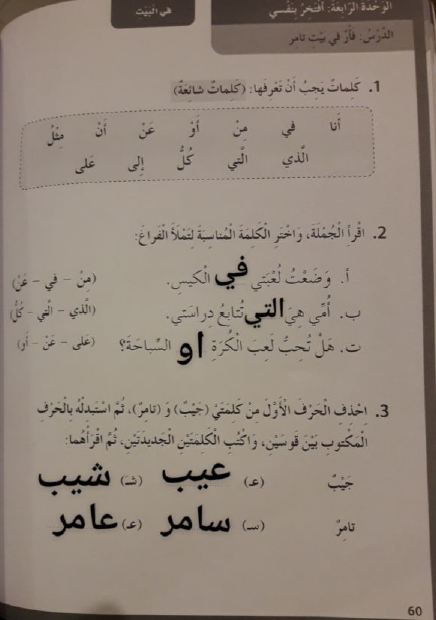 الوَحْدَةُ الرّابِعَةُ: أَفْتَخِرُ بِنَفْسي
في الْبَيْت
الدَّرْسُ: فَأْرٌ في بَيْتِ تامِر
1. كَلِماتٌ يَجِبُ أَنْ تَعْرِفَها: (كَلِماتٌ شائِعَةٌ)
أَنا في مِنْ أَوْ عَنْ أَنْ مِثْلُ
الَّذي الَّتي كُلُّ إِلى عَلى
2. اقْرَأِ الْجُمْلَةَ، وَاخْتَرِ الْكَلِمَةَ الْمُناسِبَةَ لِتَمْلَأَ الْفَراغَ:
أ. وَضَعْتُ لُعْبَتي في الْكيسِ. (مِنْ - في - عَنْ)
ب. أُمّي هِيَ التي تُتابِعُ دِراسَتي. (الَّذي - الَّتي - كُلُّ)
ت. هَلْ تُحِبُّ لَعِبَ الْكُرَةِ او السِّباحَةَ؟ (عَلى - عَنْ - أَوْ)
3. اِحْذِفِ الْحَرْفَ الْأَوَّلَ مِنْ كَلِمَتَيْ (جَيْبٌ) وَ (تامِرٌ)، ثُمَّ اسْتَبْدِلْهُ بِالْحَرْفِ
الْمَكْتوبِ بَيْنَ قَوْسَيْنِ، وَاكْتُبِ الْكَلِمَتَيْنِ الْجَديدَتَيْنِ، ثُمَّ اقْرَأْهُما:
جَيْبٌ (عـ) عيب (شـ) شيب
تامِرٌ (سـ) سامر (عـ) عامر
60